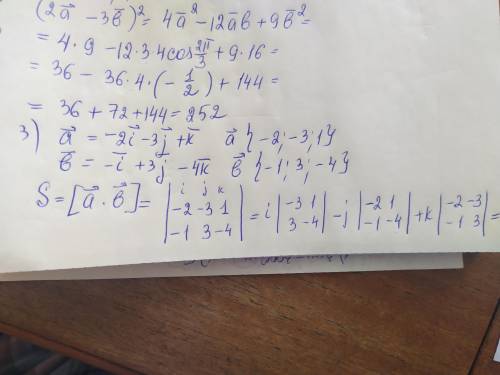 (2a⃗ - 3b̅)² = 4a̅² - 12a̅b̅ + 9b̅² =
= 4 · 9 - 12 · 3 4 cos 2π/3 + 9 · 16 =
= 36 - 36 · 4 · (- 1/2) + 144 =
= 36 + 72 + 144 = 252
3) a⃗ = -2i⃗ - 3j⃗ + k̅ a⃗ {-2; -3; 1}
b̅ = -i̅ + 3j - 4k̅ b⃗ {-1; 3; -4}
S = [a⃗ · b⃗] = |i j k; -2 -3 1; -1 3 -4| = i |-3 1; 3 -4| - j |-2 1; -1 -4| + k |-2 -3; -1 3| =